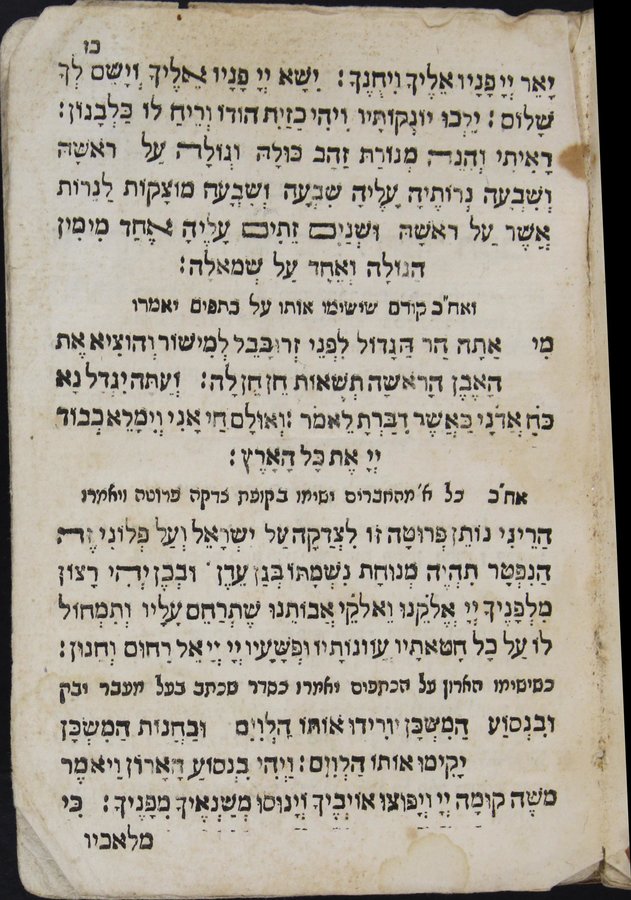 כז
יָאֵר יְיָ פָּנָיו אֵלֶיךָ וִיחֻנֶּךָּ: יִשָּׂא יְיָ פָּנָיו אֵלֶיךָ וְיָשֵׂם לְךָ
שָׁלוֹם: יֵלְכוּ יוֹנְקוֹתָיו וִיהִי כַזַּיִת הוֹדוֹ וְרֵיחַ לוֹ כַּלְּבָנוֹן:
רָאִיתִי וְהִנֵּה מְנוֹרַת זָהָב כּוּלָּהּ וְגוּלָּהּ עַל רֹאשָׁהּ
וְשִׁבְעָה נֵרוֹתֶיהָ עָלֶיהָ שִׁבְעָה וְשִׁבְעָה מוּצָקוֹת לַנֵּרוֹת
אֲשֶׁר עַל רֹאשָׁהּ וּשְׁנַיִם זֵתִים עָלֶיהָ אֶחָד מִימִין
הַגּוּלָּה וְאֶחָד עַל שְׂמֹאלָהּ:
ואח"כ קודם ששימו אותו על כתפים יאמרו
מִי אַתָּה הַר הַגָּדוֹל לִפְנֵי זְרוּבָּבֶל לְמִישׁוֹר וְהוֹצִיא אֶת
הָאֶבֶן הָרֹאשָׁה תְּשֻׁאוֹת חֵן חֵן לָהּ: וְעַתָּה יִגְדַּל נָא
כֹּחַ אֲדֹנָי כַּאֲשֶׁר דִּבַּרְתָּ לֵאמֹר: וְאוּלָם חַי אָנִי וְיִמָּלֵא כְבוֹד
יְיָ אֶת כָּל הָאָרֶץ:
אח"כ כל א' מהחברים ישימו בקופת צדקה פרוטה ויאמרו
הֲרֵינִי נוֹתֵן פְּרוּטָה זוֹ לִצְדָקָה עַל יִשְׂרָאֵל וְעַל פְּלוֹנִי זֶה
הַנִּפְטָר תִּהְיֶה מְנוּחַת נִשְׁמָתוֹ בְּגַן עֵדֶן וּבְכֵן יְהִי רָצוֹן
מִלְּפָנֶיךָ יְיָ אֱלֹקֵנוּ וֵאלֹקֵי אֲבוֹתֵנוּ שֶׁתְּרַחֵם עָלָיו וְתִמְחוֹל
לוֹ עַל כָּל חַטֹּאתָיו עֲוֹנוֹתָיו וּפְשָׁעָיו יְיָ יְיָ אֵל רַחוּם וְחַנּוּן:
כשישימו הארון על הכתפים יאמרו כסדר שכתב בעל מעבר יבק
וּבִנְסוֹעַ הַמִּשְׁכָּן יוֹרִידוּ אוֹתוֹ הַלְוִיִּם וּבַחֲנוֹת הַמִּשְׁכָּן
יָקִימוּ אוֹתוֹ הַלְוִיִּם: וַיְהִי בִּנְסוֹעַ הָאָרוֹן וַיֹּאמֶר
מֹשֶׁה קוּמָה יְיָ וְיָפוּצוּ אוֹיְבֶיךָ וְיָנוּסוּ מְשַׂנְאֶיךָ מִפָּנֶיךָ: כִּי
מלאכיו